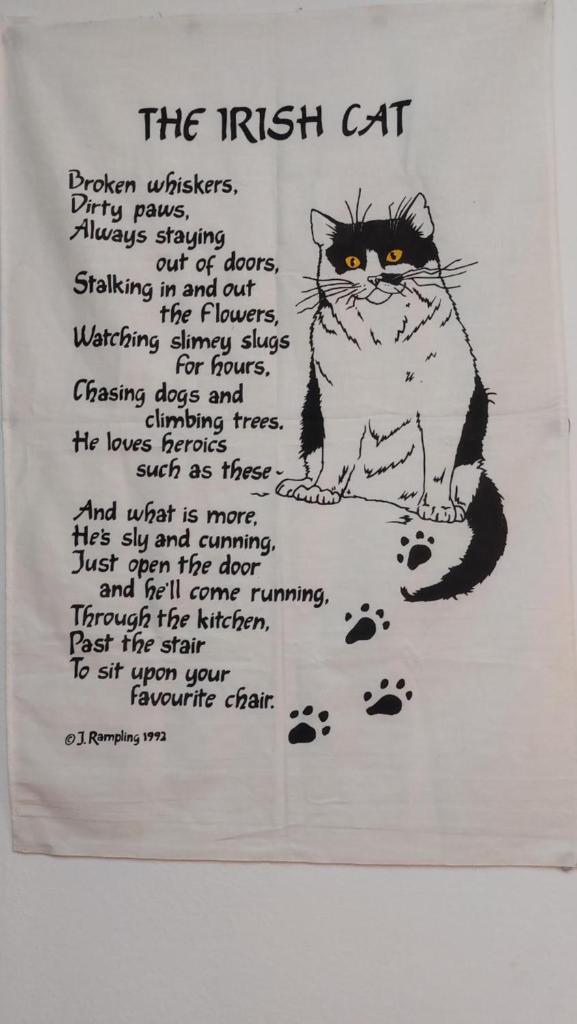 THE IRISH CAT
Broken whiskers,
Dirty paws,
Always staying
out of doors,
Stalking in and out
the flowers,
Watching slimey slugs
for hours,
Chasing dogs and
climbing trees.
He loves heroics
such as these~
And what is more,
He's sly and cunning,
Just open the door
and he'll come running,
Through the kitchen,
Past the stair
To sit upon your
favourite chair.
© J. Rampling 1992